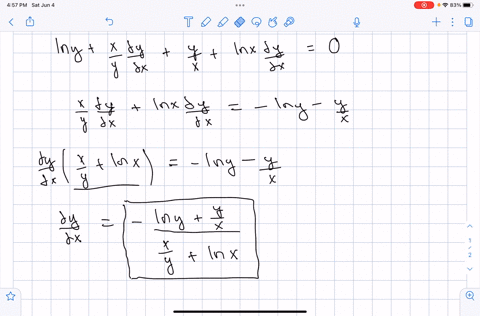 4:57 PM Sat Jun 4
83%
lny + x/y dy/dx + y/x + lnx dy/dx = 0
x/y dy/dx + lnx dy/dx = - lny - y/x
dy/dx ( x/y + lnx ) = - lny - y/x
dy/dx = - (lny + y/x) / (x/y + lnx)
1
2